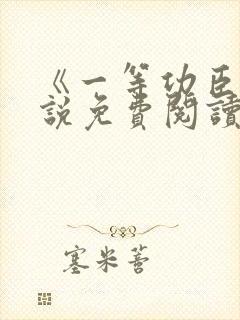 《一等功臣
說免費閱讀
塞米薔